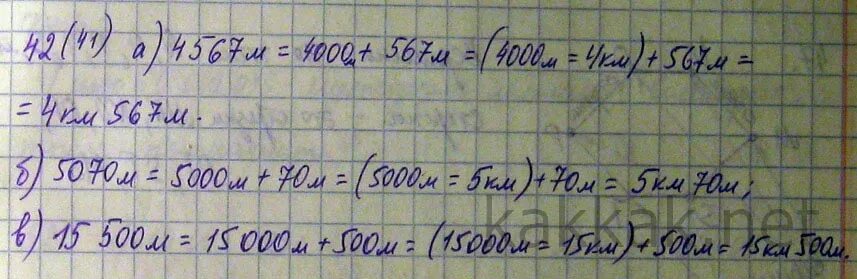 42(41) а) 4567м = 4000м + 567м = (4000м = 4км) + 567м =
= 4км 567м.
б) 5070м = 5000м + 70м = (5000м = 5км) + 70м = 5км 70м;
kakkak.net
в) 15 500м = 15000м + 500м = (15000м = 15км) + 500м = 15км 500м.